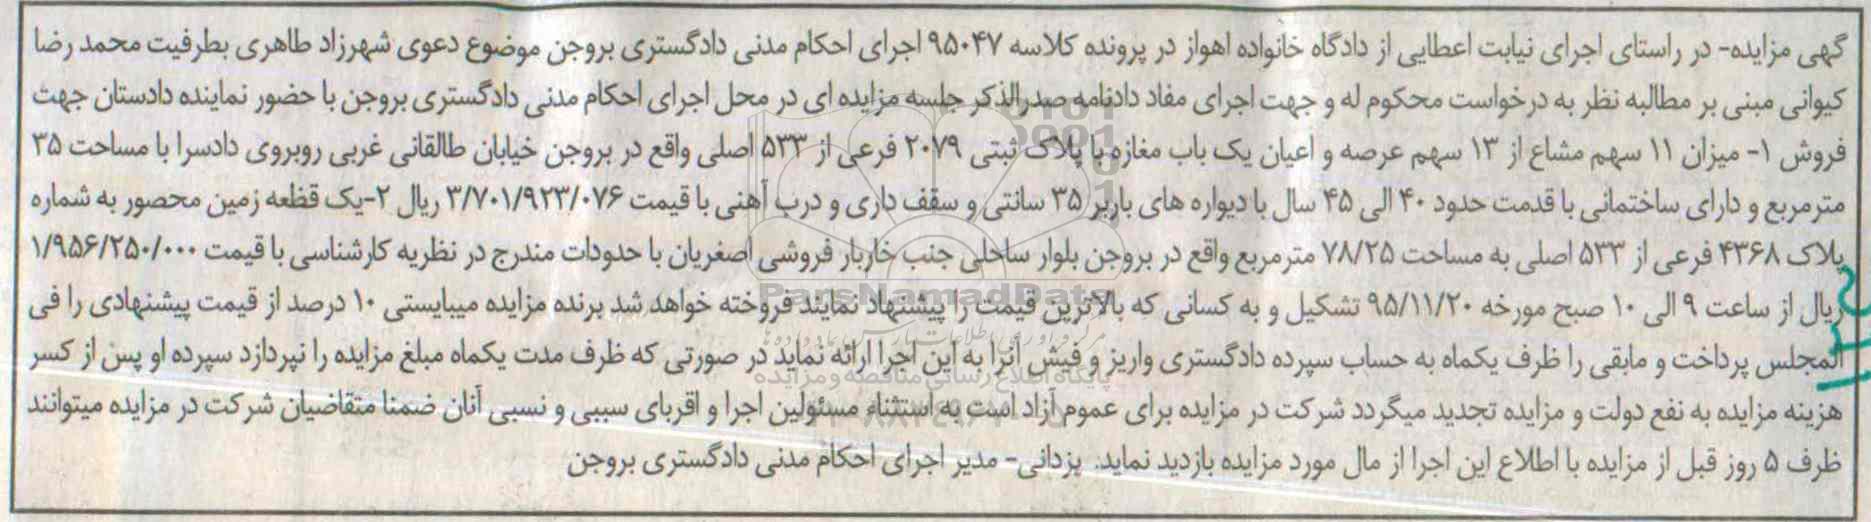 گهی مزایده- در راستای اجرای نیابت اعطایی از دادگاه خانواده اهواز در پرونده کلاسه ۹۵۰۴۷ اجرای احکام مدنی دادگستری بروجن موضوع دعوی شهرزاد طاهری بطرفیت محمد رضا
کیوانی مبنی بر مطالبه نظر به درخواست محکوم له و جهت اجرای مفاد دادنامه صدرالذکر جلسه مزایده ای در محل اجرای احکام مدنی دادگستری بروجن با حضور نماینده دادستان جهت
فروش ۱- میزان ۱۱ سهم مشاع از ۱۳ سهم عرصه و اعیان یک باب مغازه با پلاک ثبتی ۲۰۷۹ فرعی از ۵۳۳ اصلی واقع در بروجن خیابان طالقانی غربی روبروی دادسرا با مساحت ۳۵
مترمربع و دارای ساختمانی با قدمت حدود ۴۰ الی ۴۵ سال با دیواره های باربر ۳۵ سانتی و سقف داری و درب آهنی با قیمت ۳/۷۰۱/۹۲۳/۰۷۶ ریال ۲-یک قطعه زمین محصور به شماره
پلاک ۴۳۶۸ فرعی از ۵۳۳ اصلی به مساحت ۷۸/۲۵ مترمربع واقع در بروجن بلوار ساحلی جنب خاربار فروشی اصغریان با حدودات مندرج در نظریه کارشناسی با قیمت ۱/۹۵۶/۲۵۰/۰۰۰
ریال از ساعت ۹ الی ۱۰ صبح مورخه ۹۵/۱۱/۲۰ تشکیل و به کسانی که بالاترین قیمت را پیشنهاد نمایند فروخته خواهد شد برنده مزایده میبایستی ۱۰ درصد از قیمت پیشنهادی را فی
المجلس پرداخت و مابقی را ظرف یکماه به حساب سپرده دادگستری واریز و فیش آنرا به این اجرا ارائه نماید در صورتی که ظرف مدت یکماه مبلغ مزایده را نپردازد سپرده او پس از کسر
هزینه مزایده به نفع دولت و مزایده تجدید میگردد شرکت در مزایده برای عموم آزاد است به استثناء مسئولین اجرا و اقربای سببی و نسبی آنان ضمنا متقاضیان شرکت در مزایده میتوانند
ظرف ۵ روز قبل از مزایده با اطلاع این اجرا از مال مورد مزایده بازدید نماید. یزدانی- مدیر اجرای احکام مدنی دادگستری بروجن
ParsNamadData
پایگاه اطلاع رسانی مناقصه و مزایده